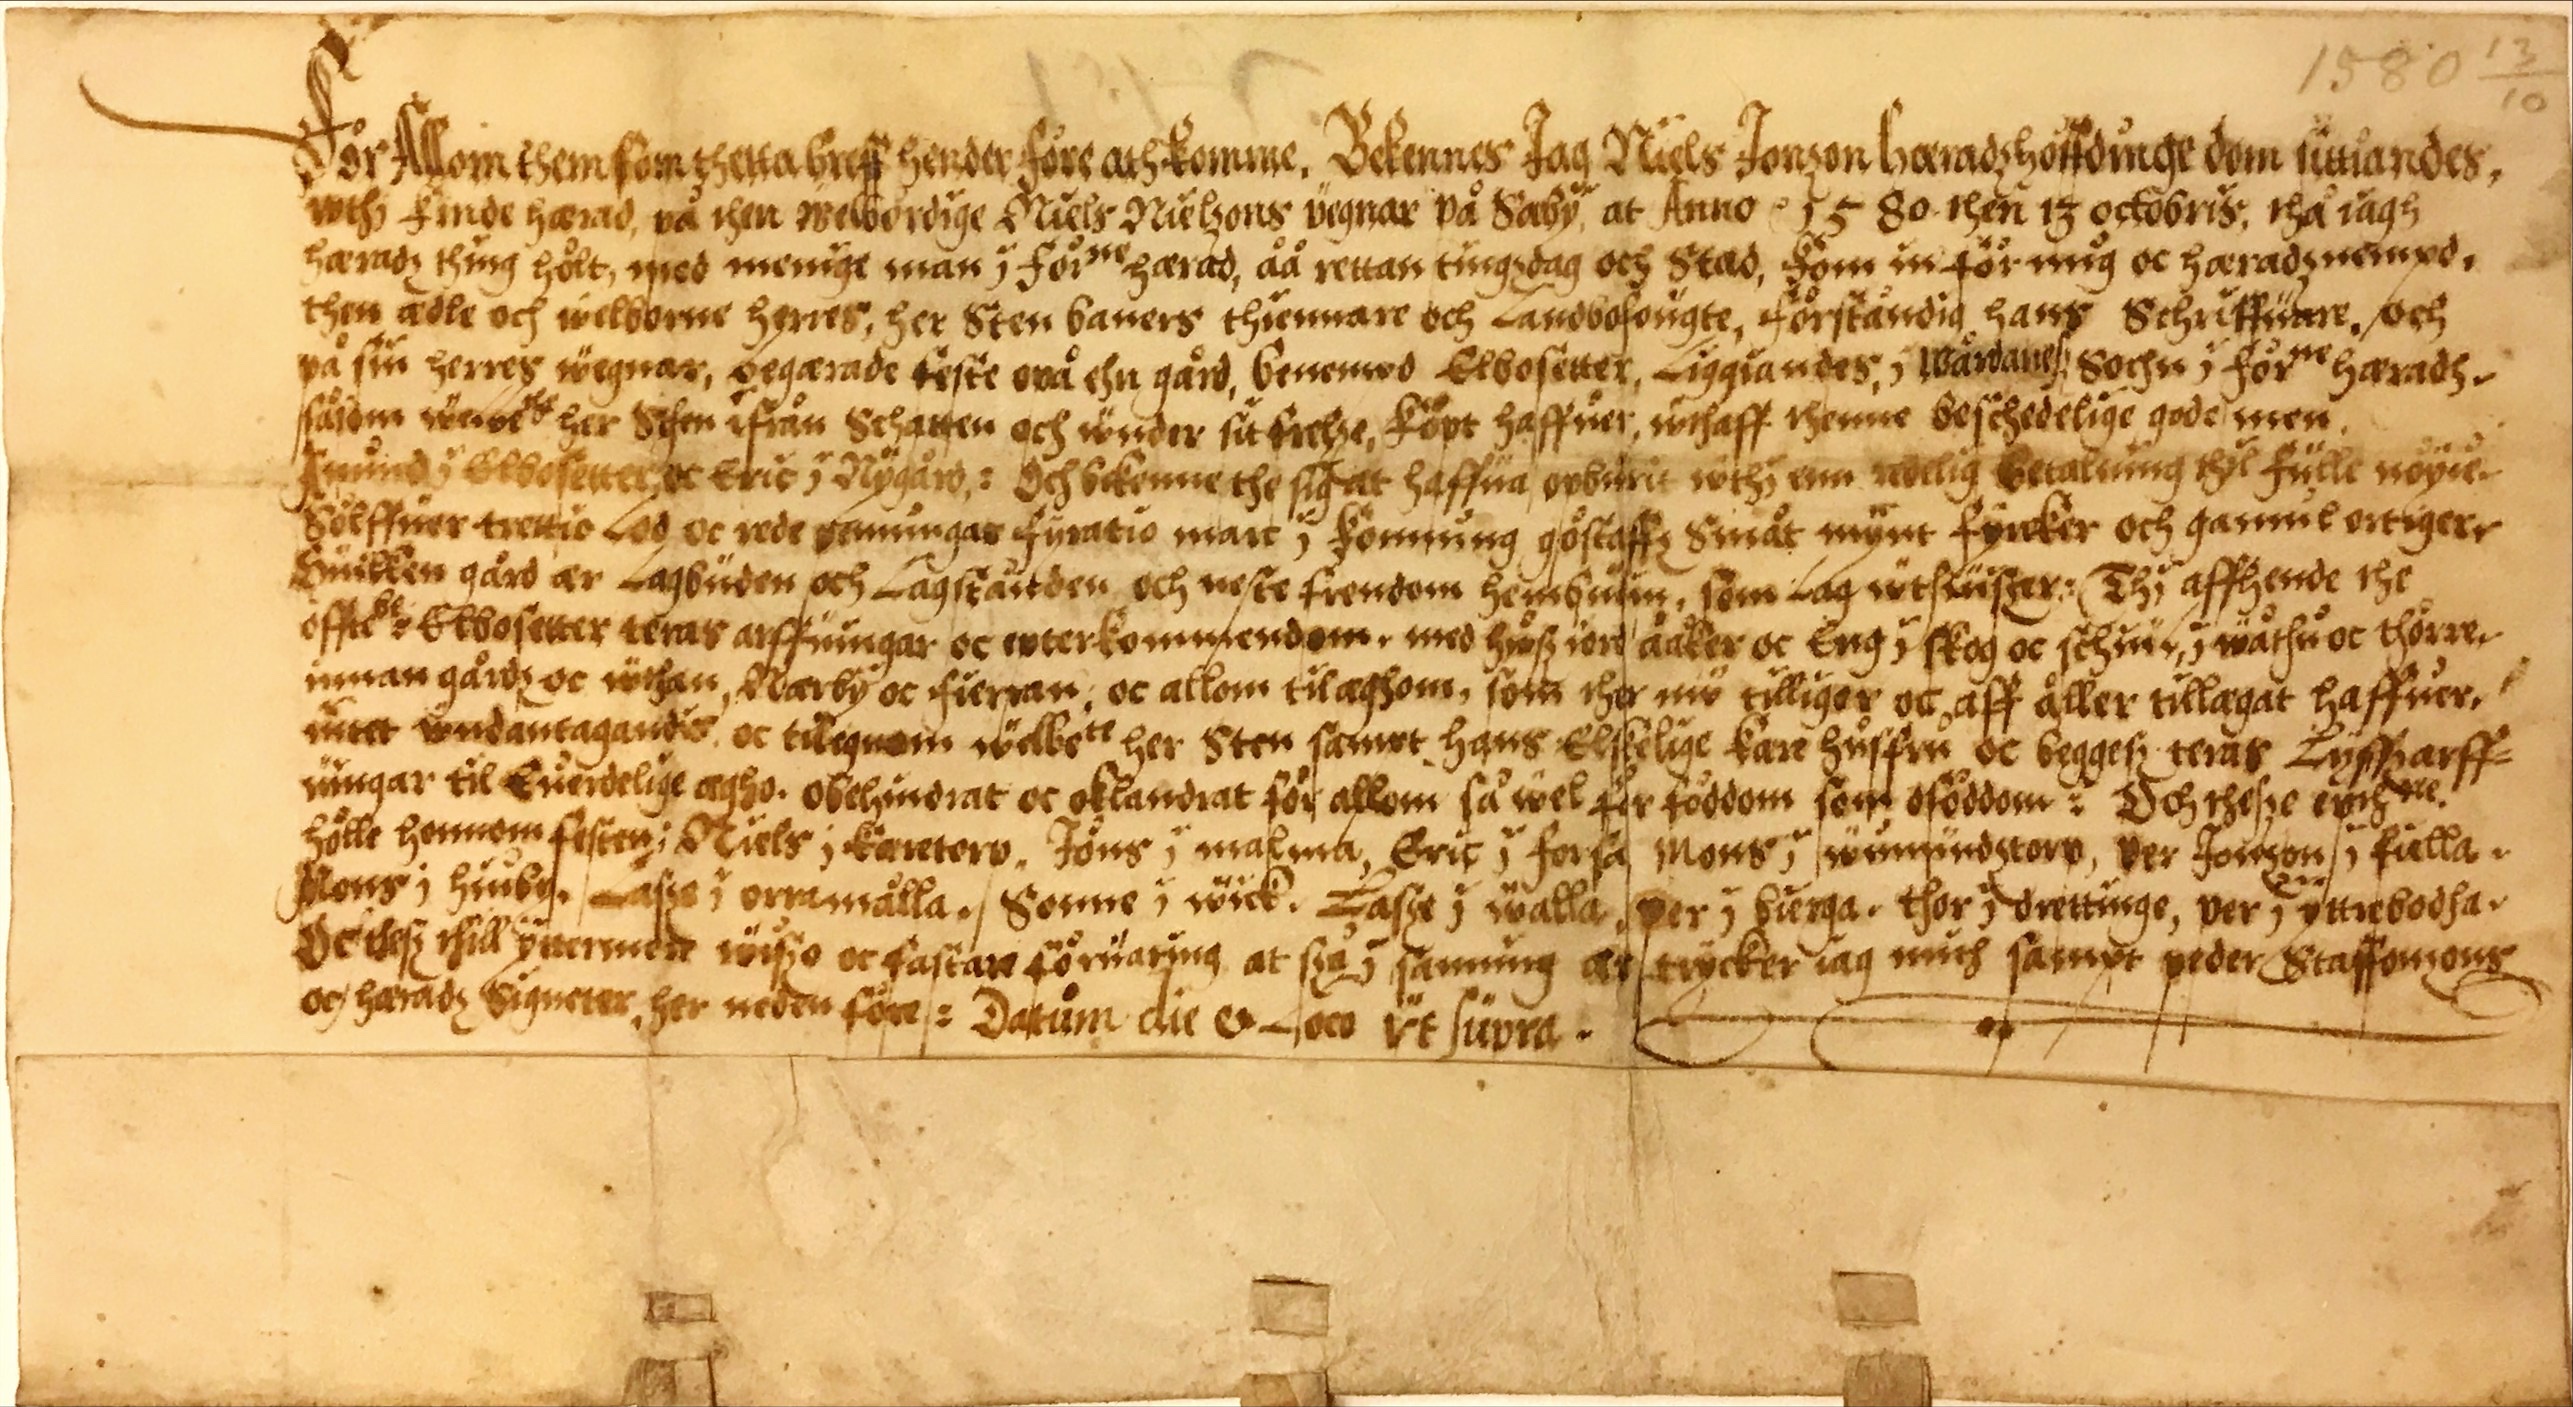 1580 13/10
För Allom them som thetta breff hender före ath komme, Bekennes Jag Niels Jonzon hæradzhöffdinge dom sittiandes,
wthj Kinde hærad, på then welbördige Niels Nielzons vegnar på Säby, at Anno 1580 then 13 octobris, thå iagh
hæradz thing hölt, med menige man j för:ne hærad, åå rettan tingzdag och Stad, kom in för mig oc hæradznempd,
then ædle och welborne herres, her Sten baners thiennare och Landbofougte, förständig hans Schriffuare, och
på sin herres wegnar, begærade feste opå ehn gård, benempd Elbosetter, Liggiandes, j Wårdanes Sochn j för:ne hæradh,
såsom her Sthen ifrån Schatten och wnder sit frelsze, köpt haffuer, wthaff thenne beschedelige gode men,
Amund j Elbosetter, oc Eric j Nygård,: Och bekenne the sig at haffua opburit wthj enn redelig betalning thil fulle nöyie,
Sölffuer trettio Lod oc rede penningar fyratio marc j konnung göstaffz Smått mynt fyrcker och gammel ortiger,
Huilken gård ær Lagbuden och Lagstånden och neste frendom hembudin, som Lag wthuiszer: Thj affhende the
offte:be: Elbosetter teras arffuingar oc epterkommendom, med husz iord aaker oc Eng j skog oc schiul, j wåthu oc thörre,
innan gårdz oc wthan, Nærby oc fierran, oc allom tilaghom, som ther nw tilliger oc aff åller tillagat haffuer,
intet wndantagandis, oc tilegnom welbe:te her Sten sampt hans Elskelige kære husfru oc beggesz teras Lyffzarff=
uingar til Euerdelige ægho, obehindrat oc oklandrat för allom så wel för föddom som oföddom: Och thesze epth:ne
hölle hennom festen; Niels j Kæretorp, Jöns j malma, Eric j forsa, Mons j wimundztorp, per Jonzon j fulla,
Mons j hiuby, Lasze j orramålla, Sonne j wick, Lasze j walla, per j bierga, thor j drettinge, per j yttrebodha,
Oc thesz thill yttermere wiszo oc fastare föruaring at sza j sanning ær trycker iag mith sampt peder Staffomons
oc hæradz Signeter, her neden före: Datum die & Loco vt supra.